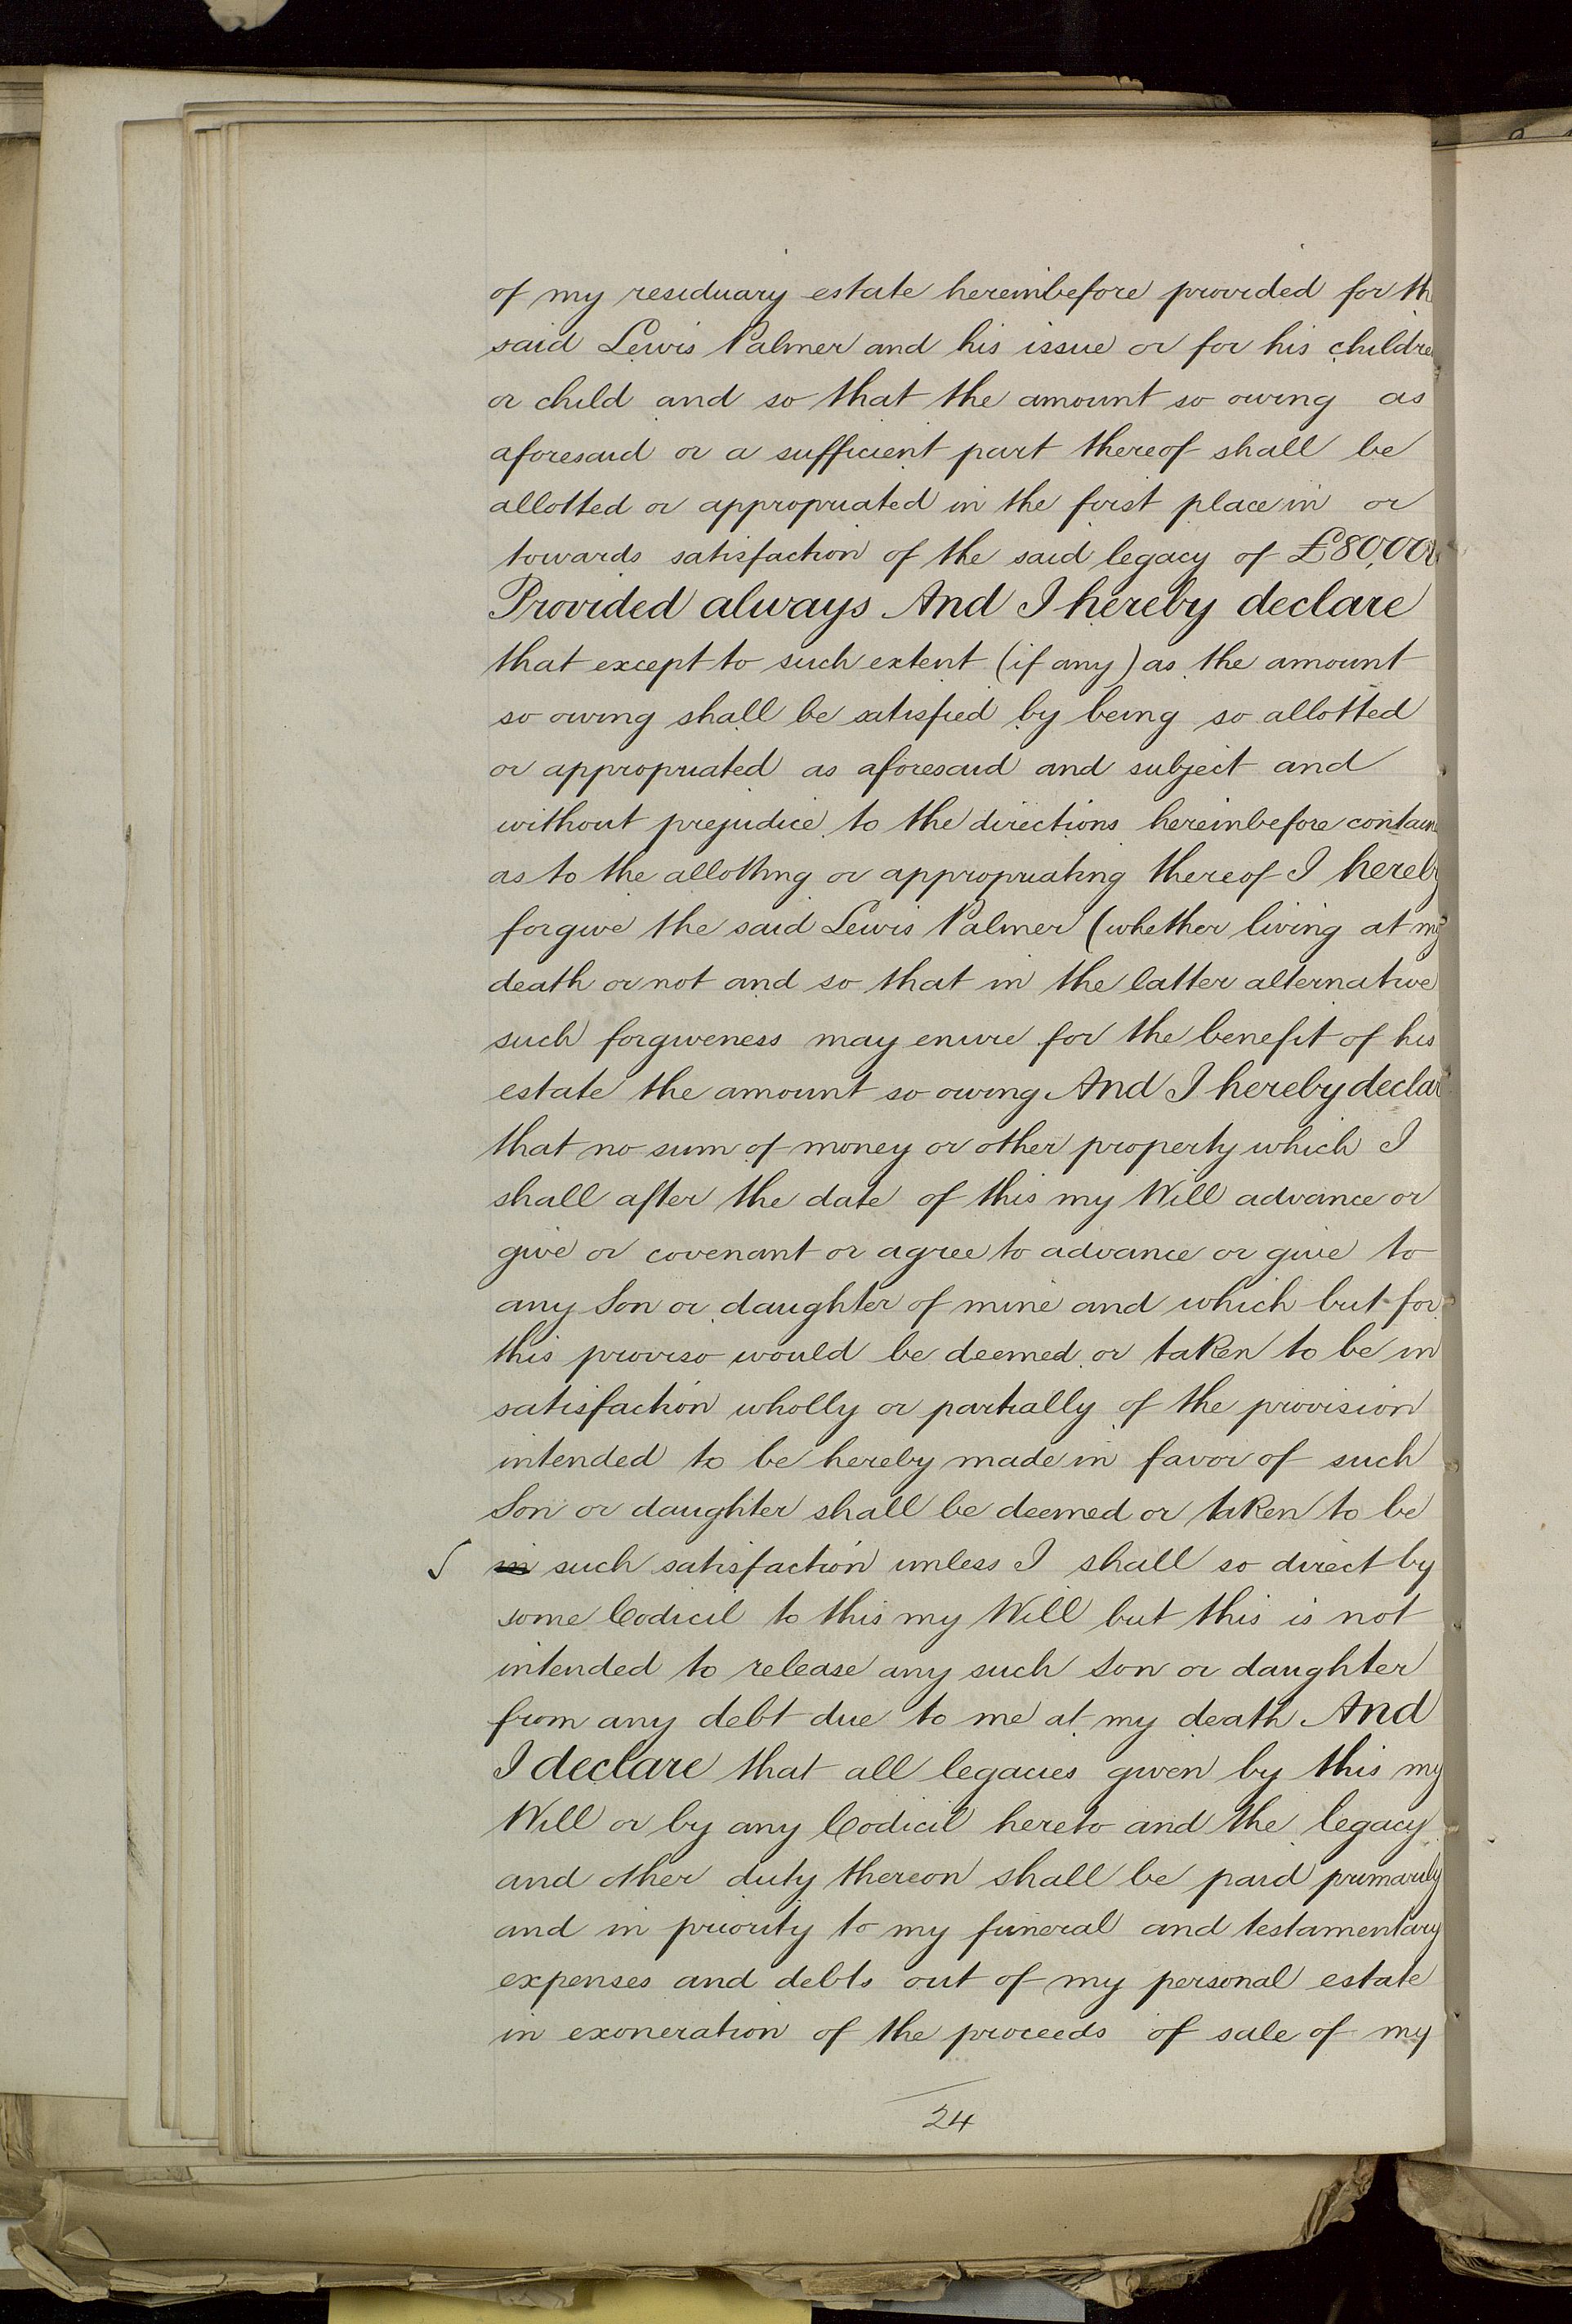 of my residuary estate hereinbefore provided for th
said Lewis Palmer and his issue or for his childre
or child and so that the amount so owing as
aforesaid or a sufficient part thereof shall be
allotted or appropriated in the first place in or
towards satisfaction of the said legacy of £80,000
Provided always And I hereby declare
that except to such extent (if any) as the amount
so owing shall be satisfied by being so allotted
or appropriated as aforesaid and subject and
without prejudice to the directions hereinbefore contain
as to the allotting or appropriating thereof I hereby
forgive the said Lewis Palmer (whether living at my
death or not and so that in the latter alternative
such forgiveness may enure for the benefit of his
estate the amount so owing And I hereby declar
that no sum of money or other property which I
shall after the date of this my Will advance or
give or covenant or agree to advance or give to
any Son or daughter of mine and which but for
this proviso would be deemed or taken to be in
satisfaction wholly or partially of the provision
intended to be hereby made in favor of such
Son or daughter shall be deemed or taken to be
in such satisfaction unless I shall so direct by
some Codicil to this my Will but this is not
intended to release any such Son or daughter
from any debt due to me at my death And
I declare that all legacies given by this my
Will or by any Codicil hereto and the legacy
and other duty thereon shall be paid primarily
and in priority to my funeral and testamentary
expenses and debts out of my personal estate
in exoneration of the proceeds of sale of my
24